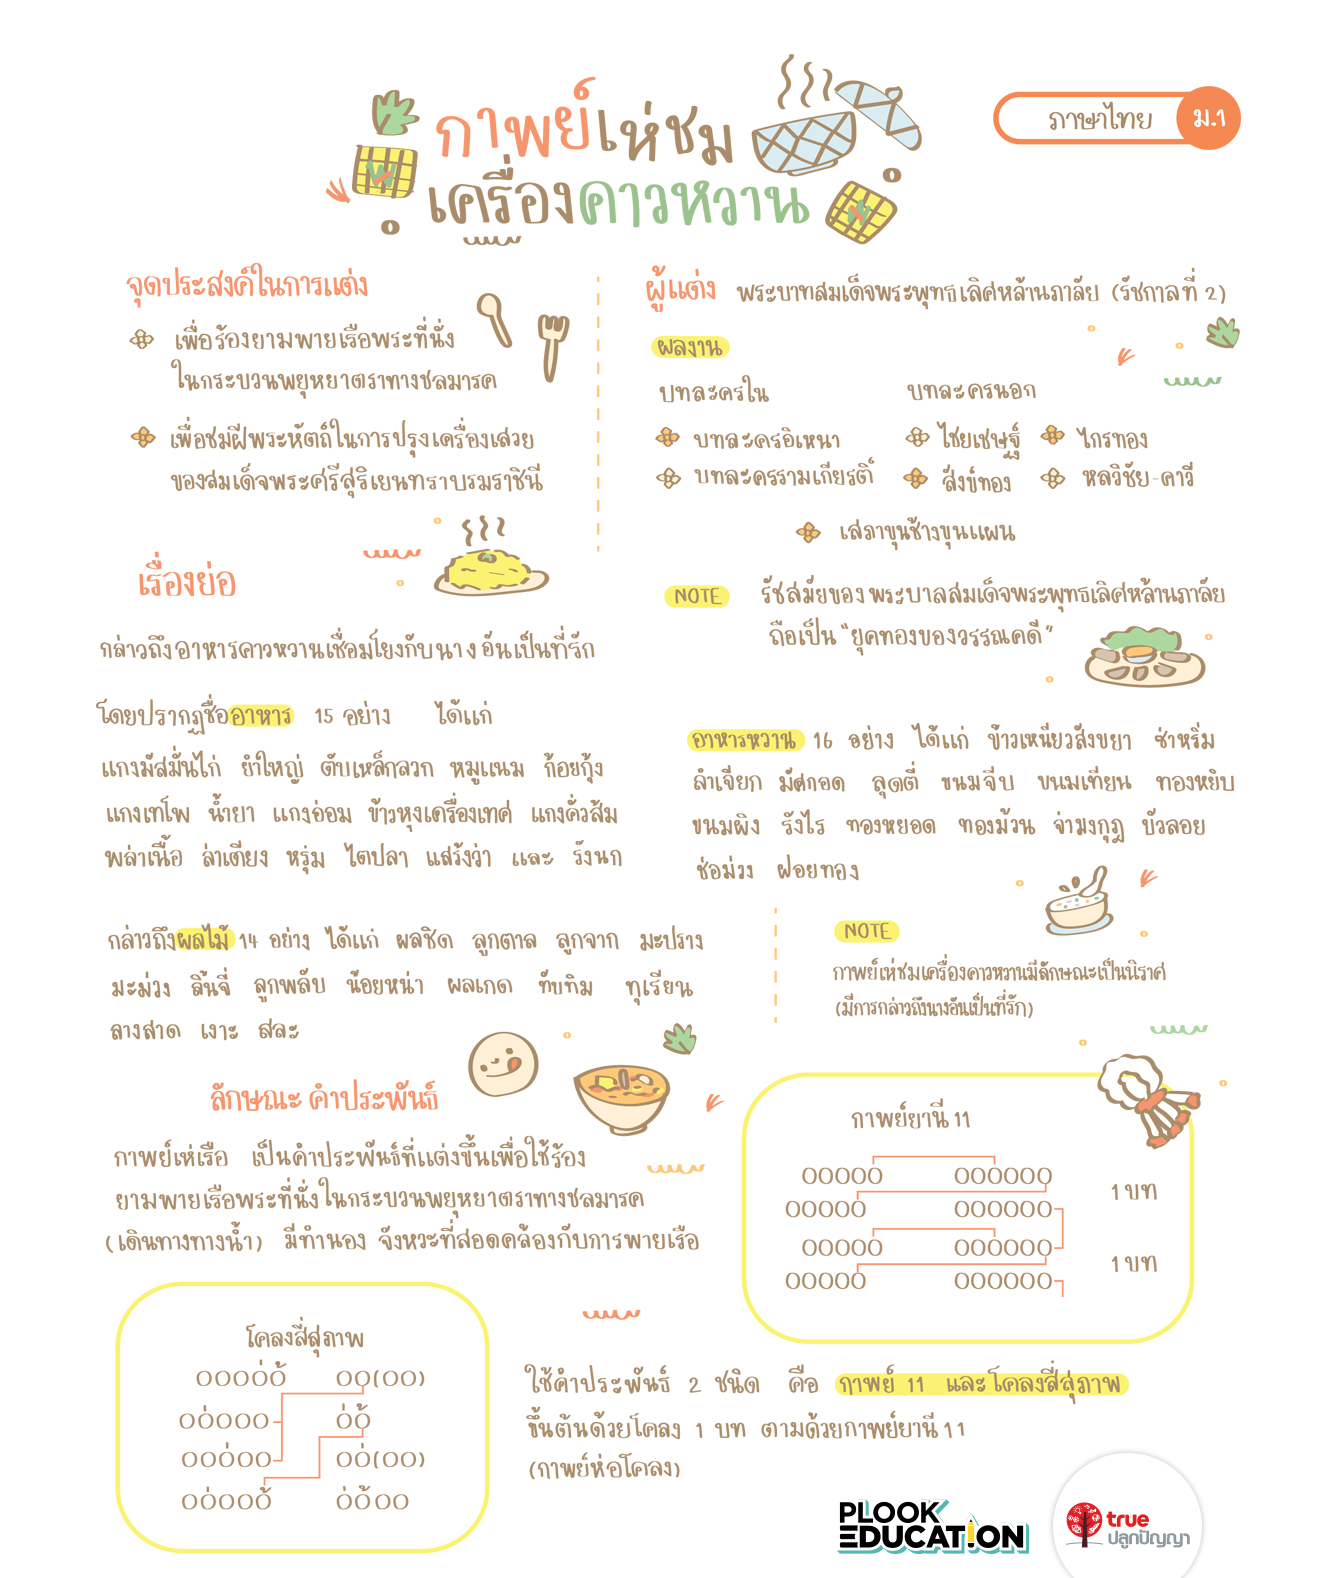 กาพย์เห่ชม
เครื่องคาวหวาน
ภาษาไทย ม.1
จุดประสงค์ในการแต่ง
เพื่อร้องยามพายเรือพระที่นั่ง
ในกระบวนพยุหยาตราทางชลมารค
เพื่อชมฝีพระหัตถ์ในการปรุงเครื่องเสวย
ของสมเด็จพระศรีสุริเยนทราบรมราชินี
ผู้แต่ง พระบาทสมเด็จพระพุทธเลิศหล้านภาลัย (รัชกาลที่ 2)
ผลงาน
บทละครใน บทละครนอก
บทละครอิเหนา ไชยเชษฐ์ ไกรทอง
บทละครรามเกียรติ์ สังข์ทอง หลวิชัย-คาวี
เสภาขุนช้างขุนแผน
NOTE รัชสมัยของพระบาลสมเด็จพระพุทธเลิศหล้านภาลัย
ถือเป็น "ยุคทองของวรรณคดี"
เรื่องย่อ
กล่าวถึงอาหารคาวหวานเชื่อมโยงกับนาง อันเป็นที่รัก
โดยปรากฏชื่ออาหาร 15 อย่าง ได้แก่
แกงมัสมั่นไก่ ยำใหญ่ ตับเหล็กลวก หมูแนม ก้อยกุ้ง
แกงเทโพ น้ำยา แกงอ่อม ข้าวหุงเครื่องเทศ แกงคั่วส้ม
พล่าเนื้อ ล่าเตียง หรุ่ม ไตปลา แสร้งว่า และ รังนก
อาหารหวาน 16 อย่าง ได้แก่ ข้าวเหนียวสังขยา ซ่าหริ่ม
ลำเจียก มัศกอด ลุดตี่ ขนมจีบ ขนมเทียน ทองหยิบ
ขนมผิง รังไร ทองหยอด ทองม้วน จ่ามงกุฎ บัวลอย
ช่อม่วง ฝอยทอง
กล่าวถึงผลไม้ 14 อย่าง ได้แก่ ผลชิด ลูกตาล ลูกจาก มะปราง
มะม่วง ลิ้นจี่ ลูกพลับ น้อยหน่า ผลเกด ทับทิม ทุเรียน
ลางสาด เงาะ สละ
NOTE
กาพย์เห่ชมเครื่องคาวหวานมีลักษณะเป็นนิราศ
(มีการกล่าวถึงนางอันเป็นที่รัก)
ลักษณะ คำประพันธ์
กาพย์เห่เรือ เป็นคำประพันธ์ที่แต่งขึ้นเพื่อใช้ร้อง
ยามพายเรือพระที่นั่งในกระบวนพยุหยาตราทางชลมารค
(เดินทางทางน้ำ) มีทำนอง จังหวะที่สอดคล้องกับการพายเรือ
กาพย์ยานี 11
OOOOO OOOOOO
OOOOO OOOOOO
1 บท
OOOOO OOOOOO
OOOOO OOOOOO
1 บท
โคลงสี่สุภาพ
OOOO่O้ OO(OO)
OO่OOO O่O้
OOO่OO OO่(OO)
OO่OOO้ O่O้OO
ใช้คำประพันธ์ 2 ชนิด คือ กาพย์ 11 และโคลงสี่สุภาพ
ขึ้นต้นด้วยโคลง 1 บท ตามด้วยกาพย์ยานี 11
(กาพย์ห่อโคลง)
PLOOK
EDUCATION
true
ปลูกปัญญา